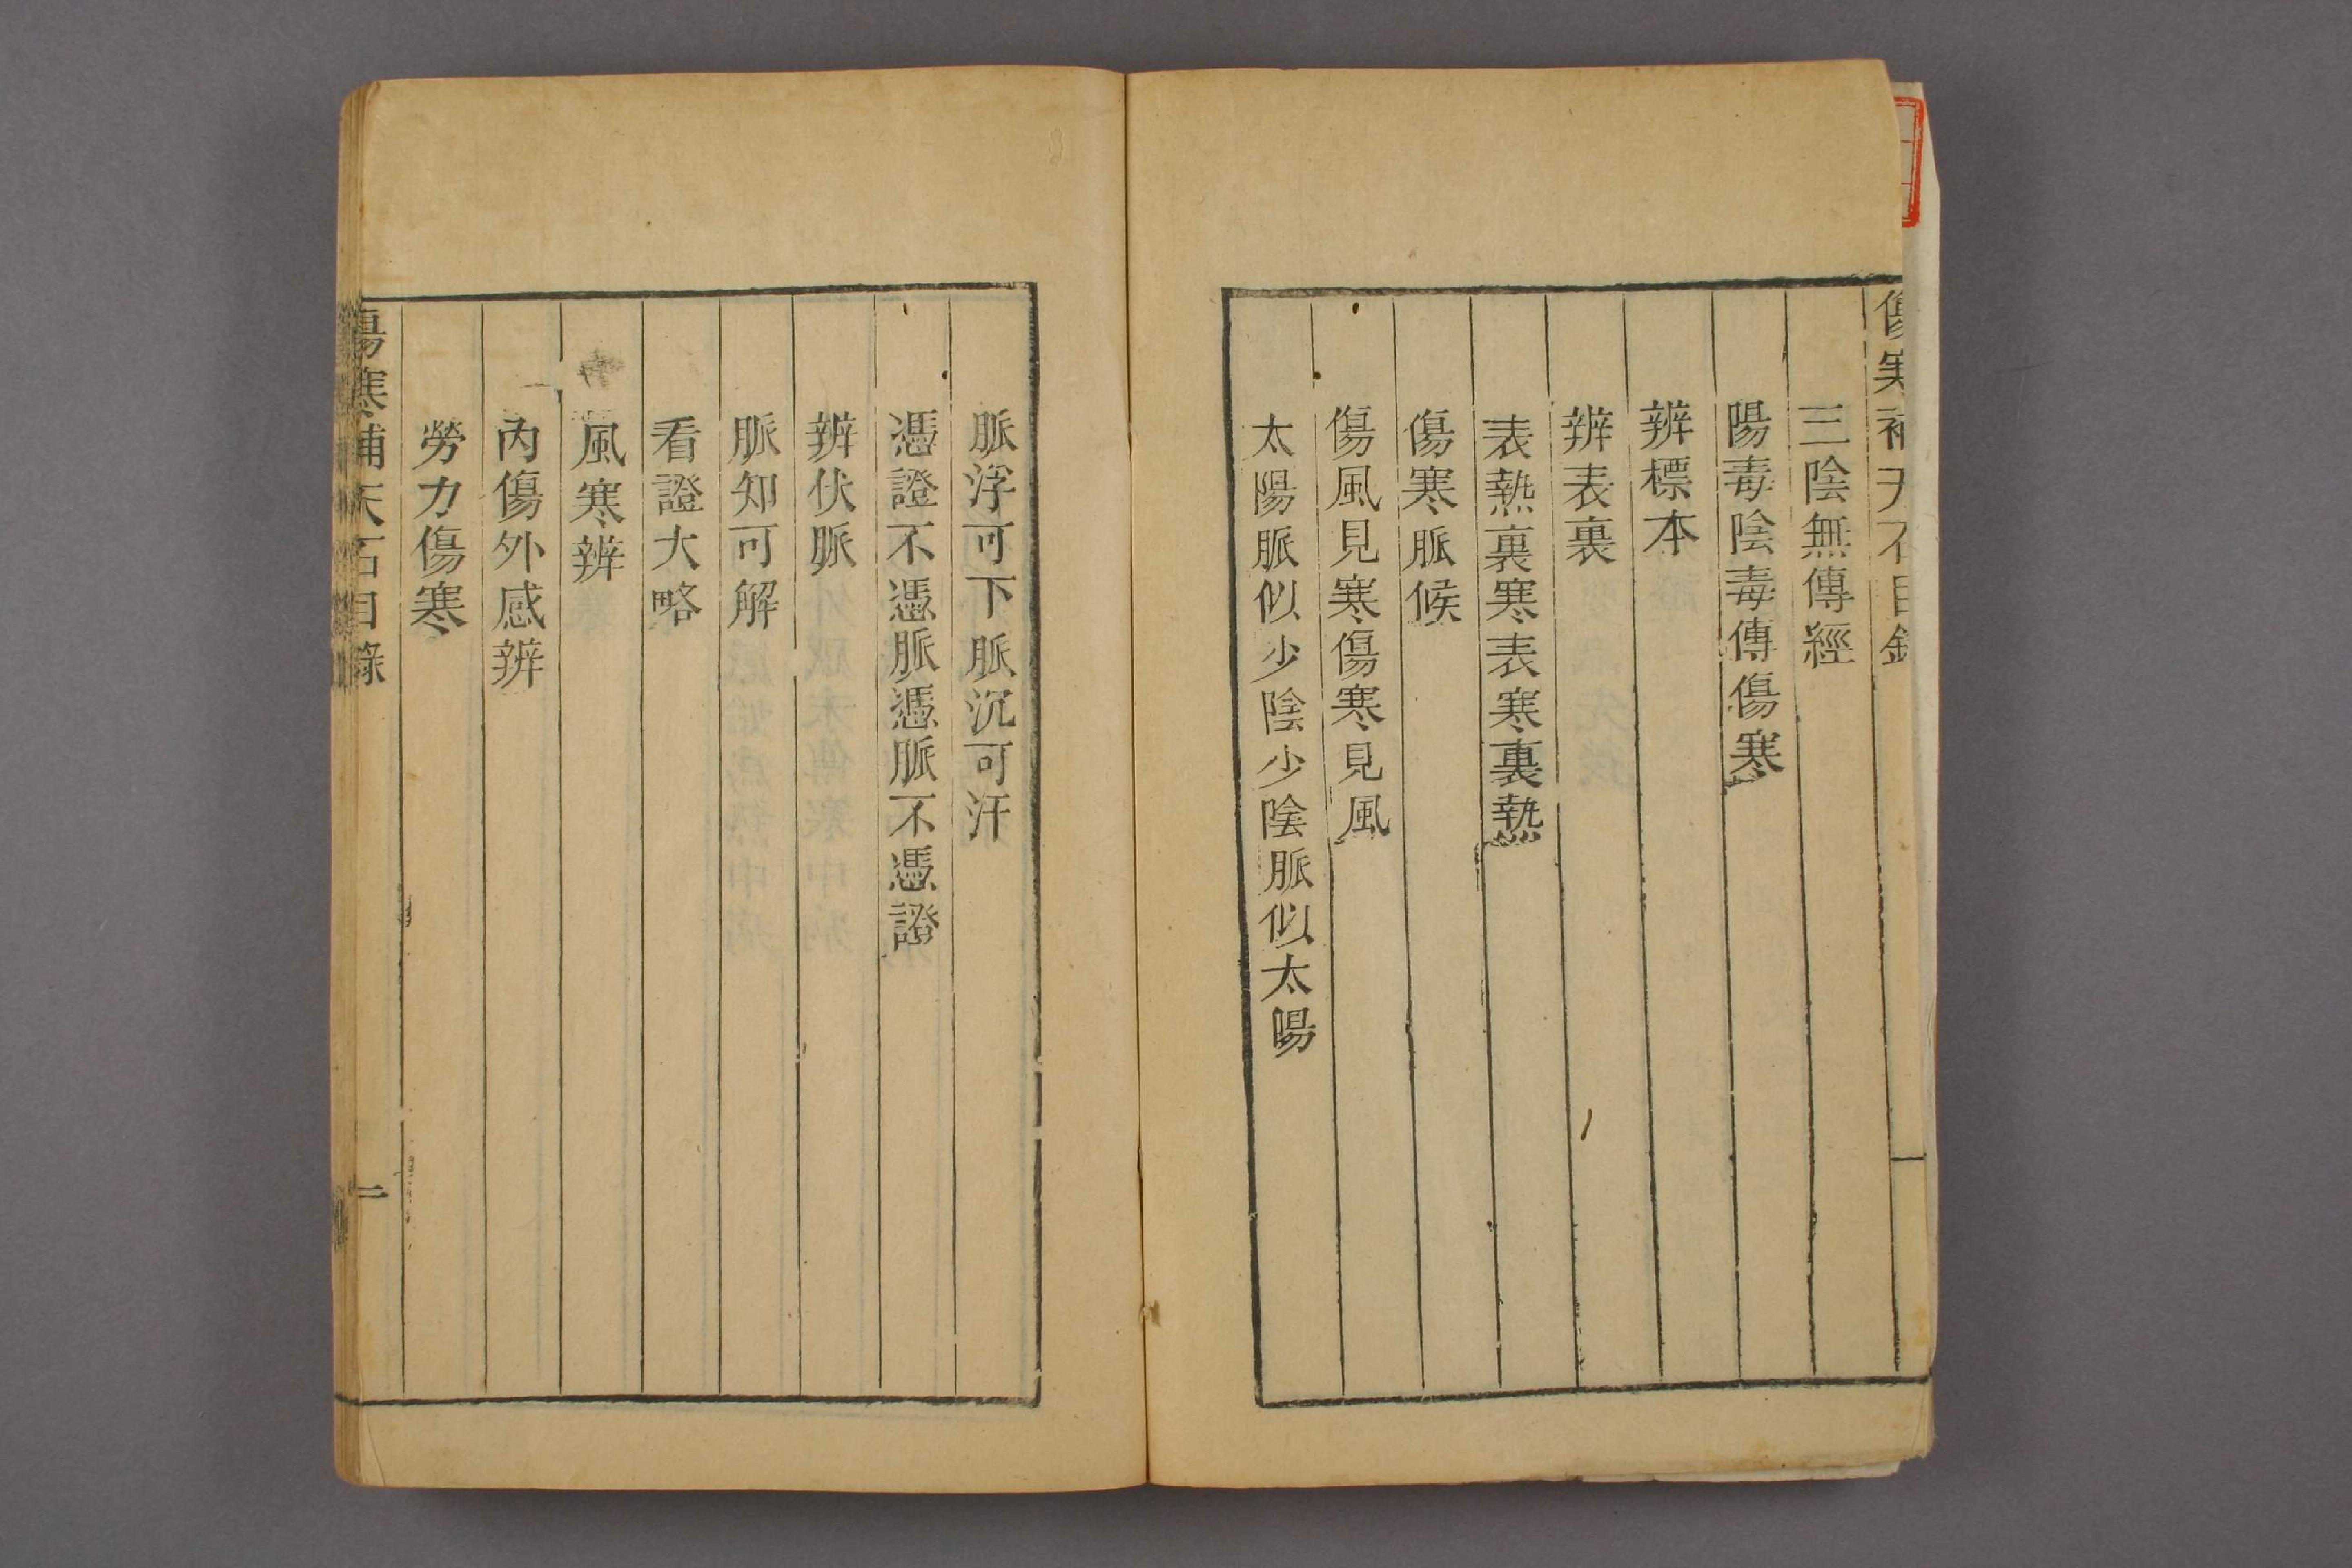 傷寒補天石目錄
一
三陰無傳經
陽毒陰毒傳傷寒
辨標本
辨表裏
表熱裏寒表寒裏熱
傷寒脈候
傷風見寒傷寒見風
太陽脈似少陰少陰脈似太陽
脈浮可下脈沉可汗
憑證不憑脈憑脈不憑證
辨伏脈
脈知可解
看證大略
風寒辨
內傷外感辨
勞力傷寒
傷寒補天石目錄
二